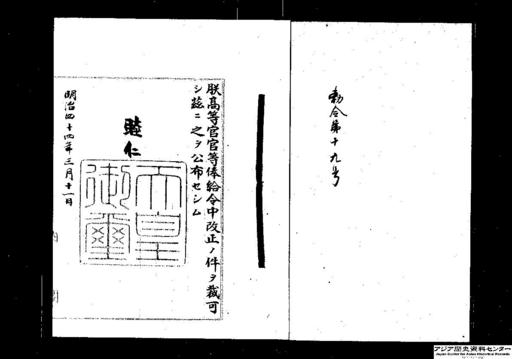 勅令第十九号
朕高等官官等俸給令中改正ノ件ヲ裁可
シ茲ニ之ヲ公布セシム
睦仁
天皇
御璽
明治四十四年三月十一日
アジア歴史資料センター
Japan Center for Asian Historical Records